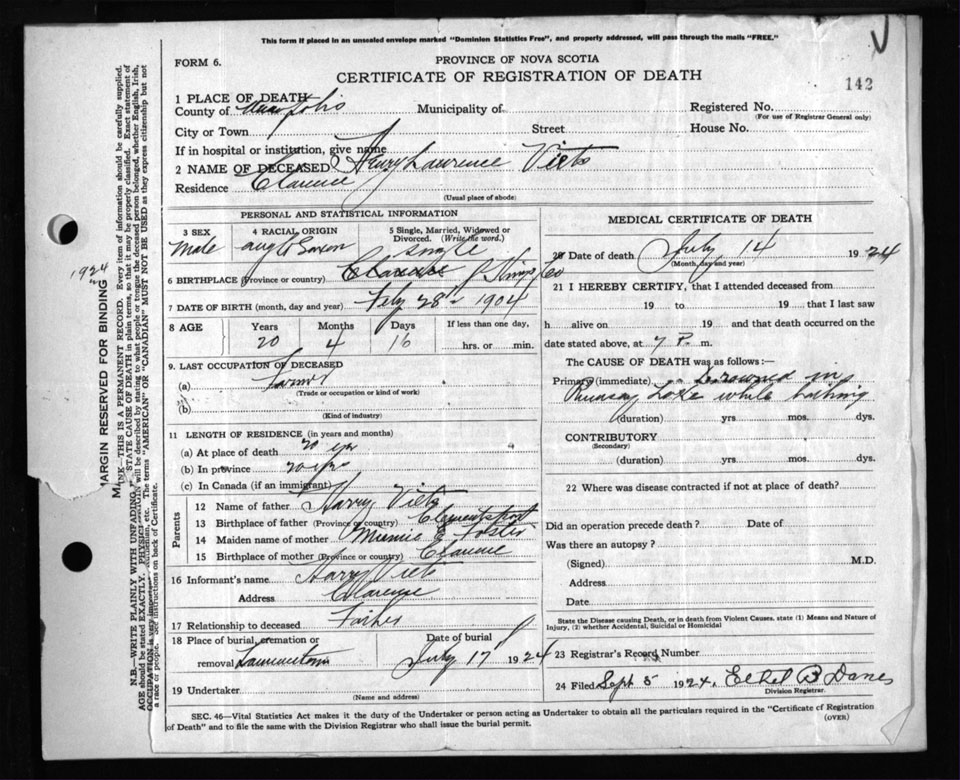 This form if placed in an unsealed envelope marked "Dominion Statistics Free", and properly addressed, will pass through the mails "FREE."
FORM 6.
PROVINCE OF NOVA SCOTIA
CERTIFICATE OF REGISTRATION OF DEATH
142
1 PLACE OF DEATH
County of Municipality of Registered No.
(For use of Registrar General only)
City or Town Street House No.
If in hospital or institution, give name
2 NAME OF DECEASED Henry Lawrence Viets
Residence Clarence
(Usual place of abode)
PERSONAL AND STATISTICAL INFORMATION
3 SEX 4 RACIAL ORIGIN 5 Single, Married, Widowed or Divorced. (Write the word.)
Male Anglo Saxon Single
6 BIRTHPLACE (Province or country) Clarence
7 DATE OF BIRTH (month, day and year) Feby 28th 1904
8 AGE Years Months Days If less than one day,
20 4 16 hrs. or min.
9. LAST OCCUPATION OF DECEASED
(a) Farmer
(Trade or occupation or kind of work)
(b)
(Kind of industry)
11 LENGTH OF RESIDENCE (in years and months)
(a) At place of death 20 yrs
(b) In province 20 yrs
(c) In Canada (if an immigrant)
Parents
12 Name of father Harry Viets
13 Birthplace of father (Province or country) Clementsport
14 Maiden name of mother Minnie E Foster
15 Birthplace of mother (Province or country) Clarence
16 Informant's name Harry Viets
Address Clarence
17 Relationship to deceased Father
18 Place of burial, cremation or removal Date of burial
July 17 1924
19 Undertaker
(Name and address)
MEDICAL CERTIFICATE OF DEATH
20 Date of death July 14 1924
(Month, day and year)
21 I HEREBY CERTIFY, that I attended deceased from
19 to 19 that I last saw
h alive on 19 and that death occurred on the
date stated above, at 7 P. m.
The CAUSE OF DEATH was as follows:—
Primary (immediate) Drowned in
Lake while bathing
(duration) yrs mos. dys.
CONTRIBUTORY
(Secondary)
(duration) yrs. mos. dys.
22 Where was disease contracted if not at place of death?
Did an operation precede death? Date of
Was there an autopsy?
(Signed) M.D.
Address
Date
State the Disease causing Death, or in death from Violent Causes. state (1) Means and Nature of Injury, (2) whether Accidental, Suicidal or Homicidal
23 Registrar's Record Number
24 Filed Sept 5 1924. Ethel B
Division Registrar.
SEC. 46—Vital Statistics Act makes it the duty of the Undertaker or person acting as Undertaker to obtain all the particulars required in the "Certificate of Registration
of Death" and to file the same with the Division Registrar who shall issue the burial permit.
(OVER)
1924
MARGIN RESERVED FOR BINDING
N.B.—WRITE PLAINLY WITH UNFADING INK—THIS IS A PERMANENT RECORD. Every item of information should be carefully supplied.
AGE should be stated EXACTLY. STATE CAUSE OF DEATH in plain terms, so that it may be properly classified. Exact statement of
OCCUPATION is very important. will be described by stating to what people or tongue the deceased person belonged, whether English, Irish,
etc. The terms "AMERICAN" OR "CANADIAN" MUST NOT BE USED as they express citizenship but not
a race or people. See instructions on back of Certificate.